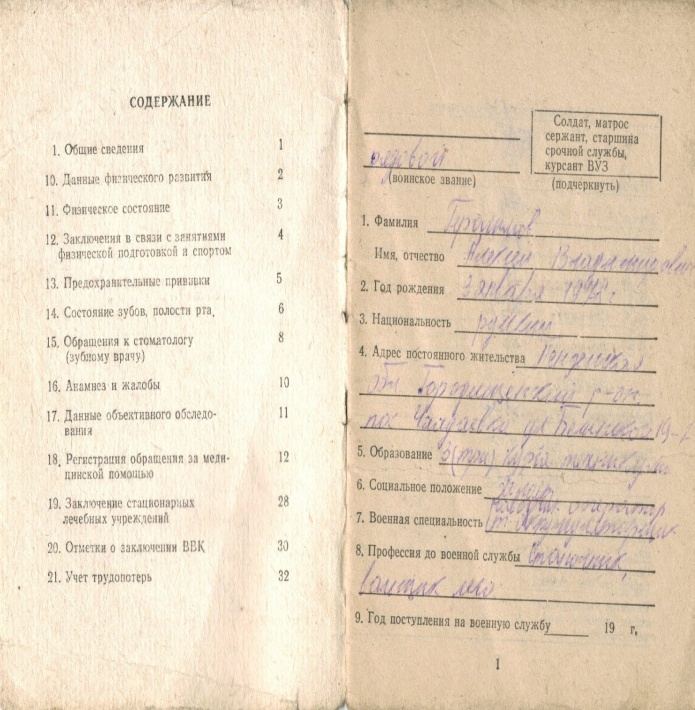 СОДЕРЖАНИЕ
1. Общие сведения 1
10. Данные физического развития 2
11. Физическое состояние 3
12. Заключения в связи с занятиями 4
физической подготовкой и спортом
13. Предохранительные прививки 5
14. Состояние зубов, полости рта 6
15. Обращения к стоматологу 8
(зубному врачу)
16. Анамнез и жалобы 10
17. Данные объективного обследо- 11
вания
18. Регистрация обращения за меди- 12
цинской помощью
19. Заключение стационарных 28
лечебных учреждений
20. Отметки о заключении ВВК 30
21. Учет трудопотерь 32
Солдат, матрос
сержант, старшина
срочной службы,
курсант ВУЗ
(подчеркнуть)
рядовой
(воинское звание)
1. Фамилия
Имя, отчество Алексей Владимирович
2. Год рождения 3
3. Национальность русский
4. Адрес постоянного жительства Пензенская
обл Городищенский р-он
пос Чаадаевка ул
5. Образование 3 (три) курса техникума
6. Социальное положение
7. Военная специальность
8. Профессия до военной службы
9. Год поступления на военную службу 19 г,
1